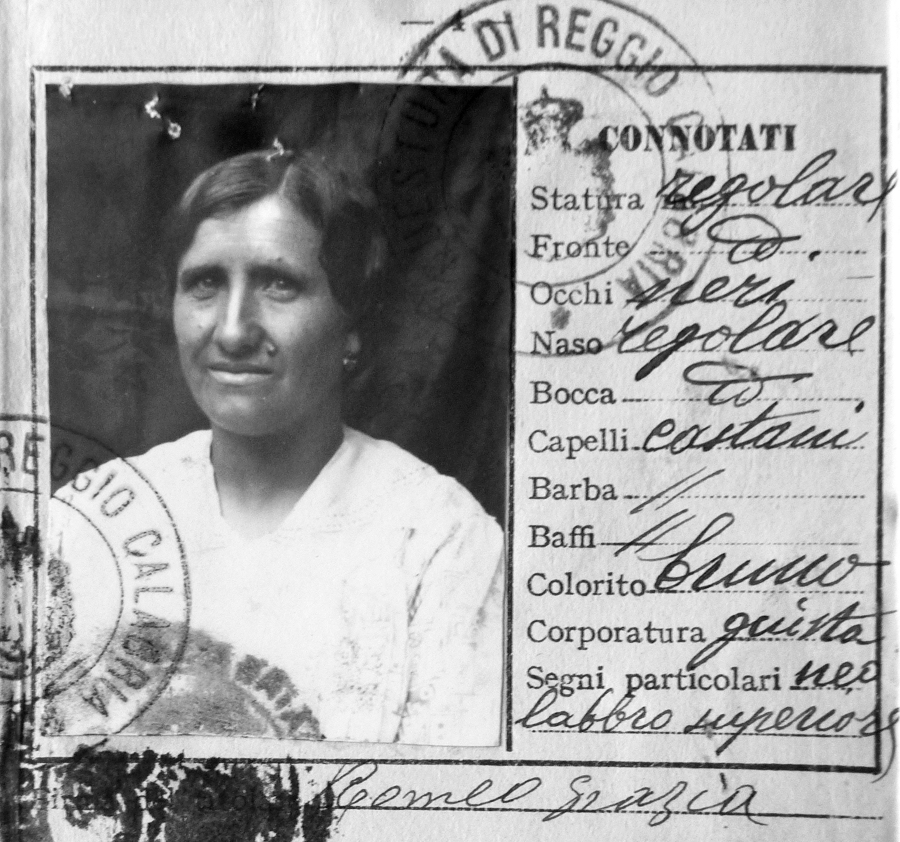 — 4
QUESTURA DI REGGIO CALABRIA
CONNOTATI
Statura regolare
Fronte id.
Occhi neri
Naso regolare
Bocca id.
Capelli castani
Barba //
Baffi //
Colorito bruno
Corporatura giusta
Segni particolari neo
labbro superiore
REGGIO CALABRIA
Romeo Grazia